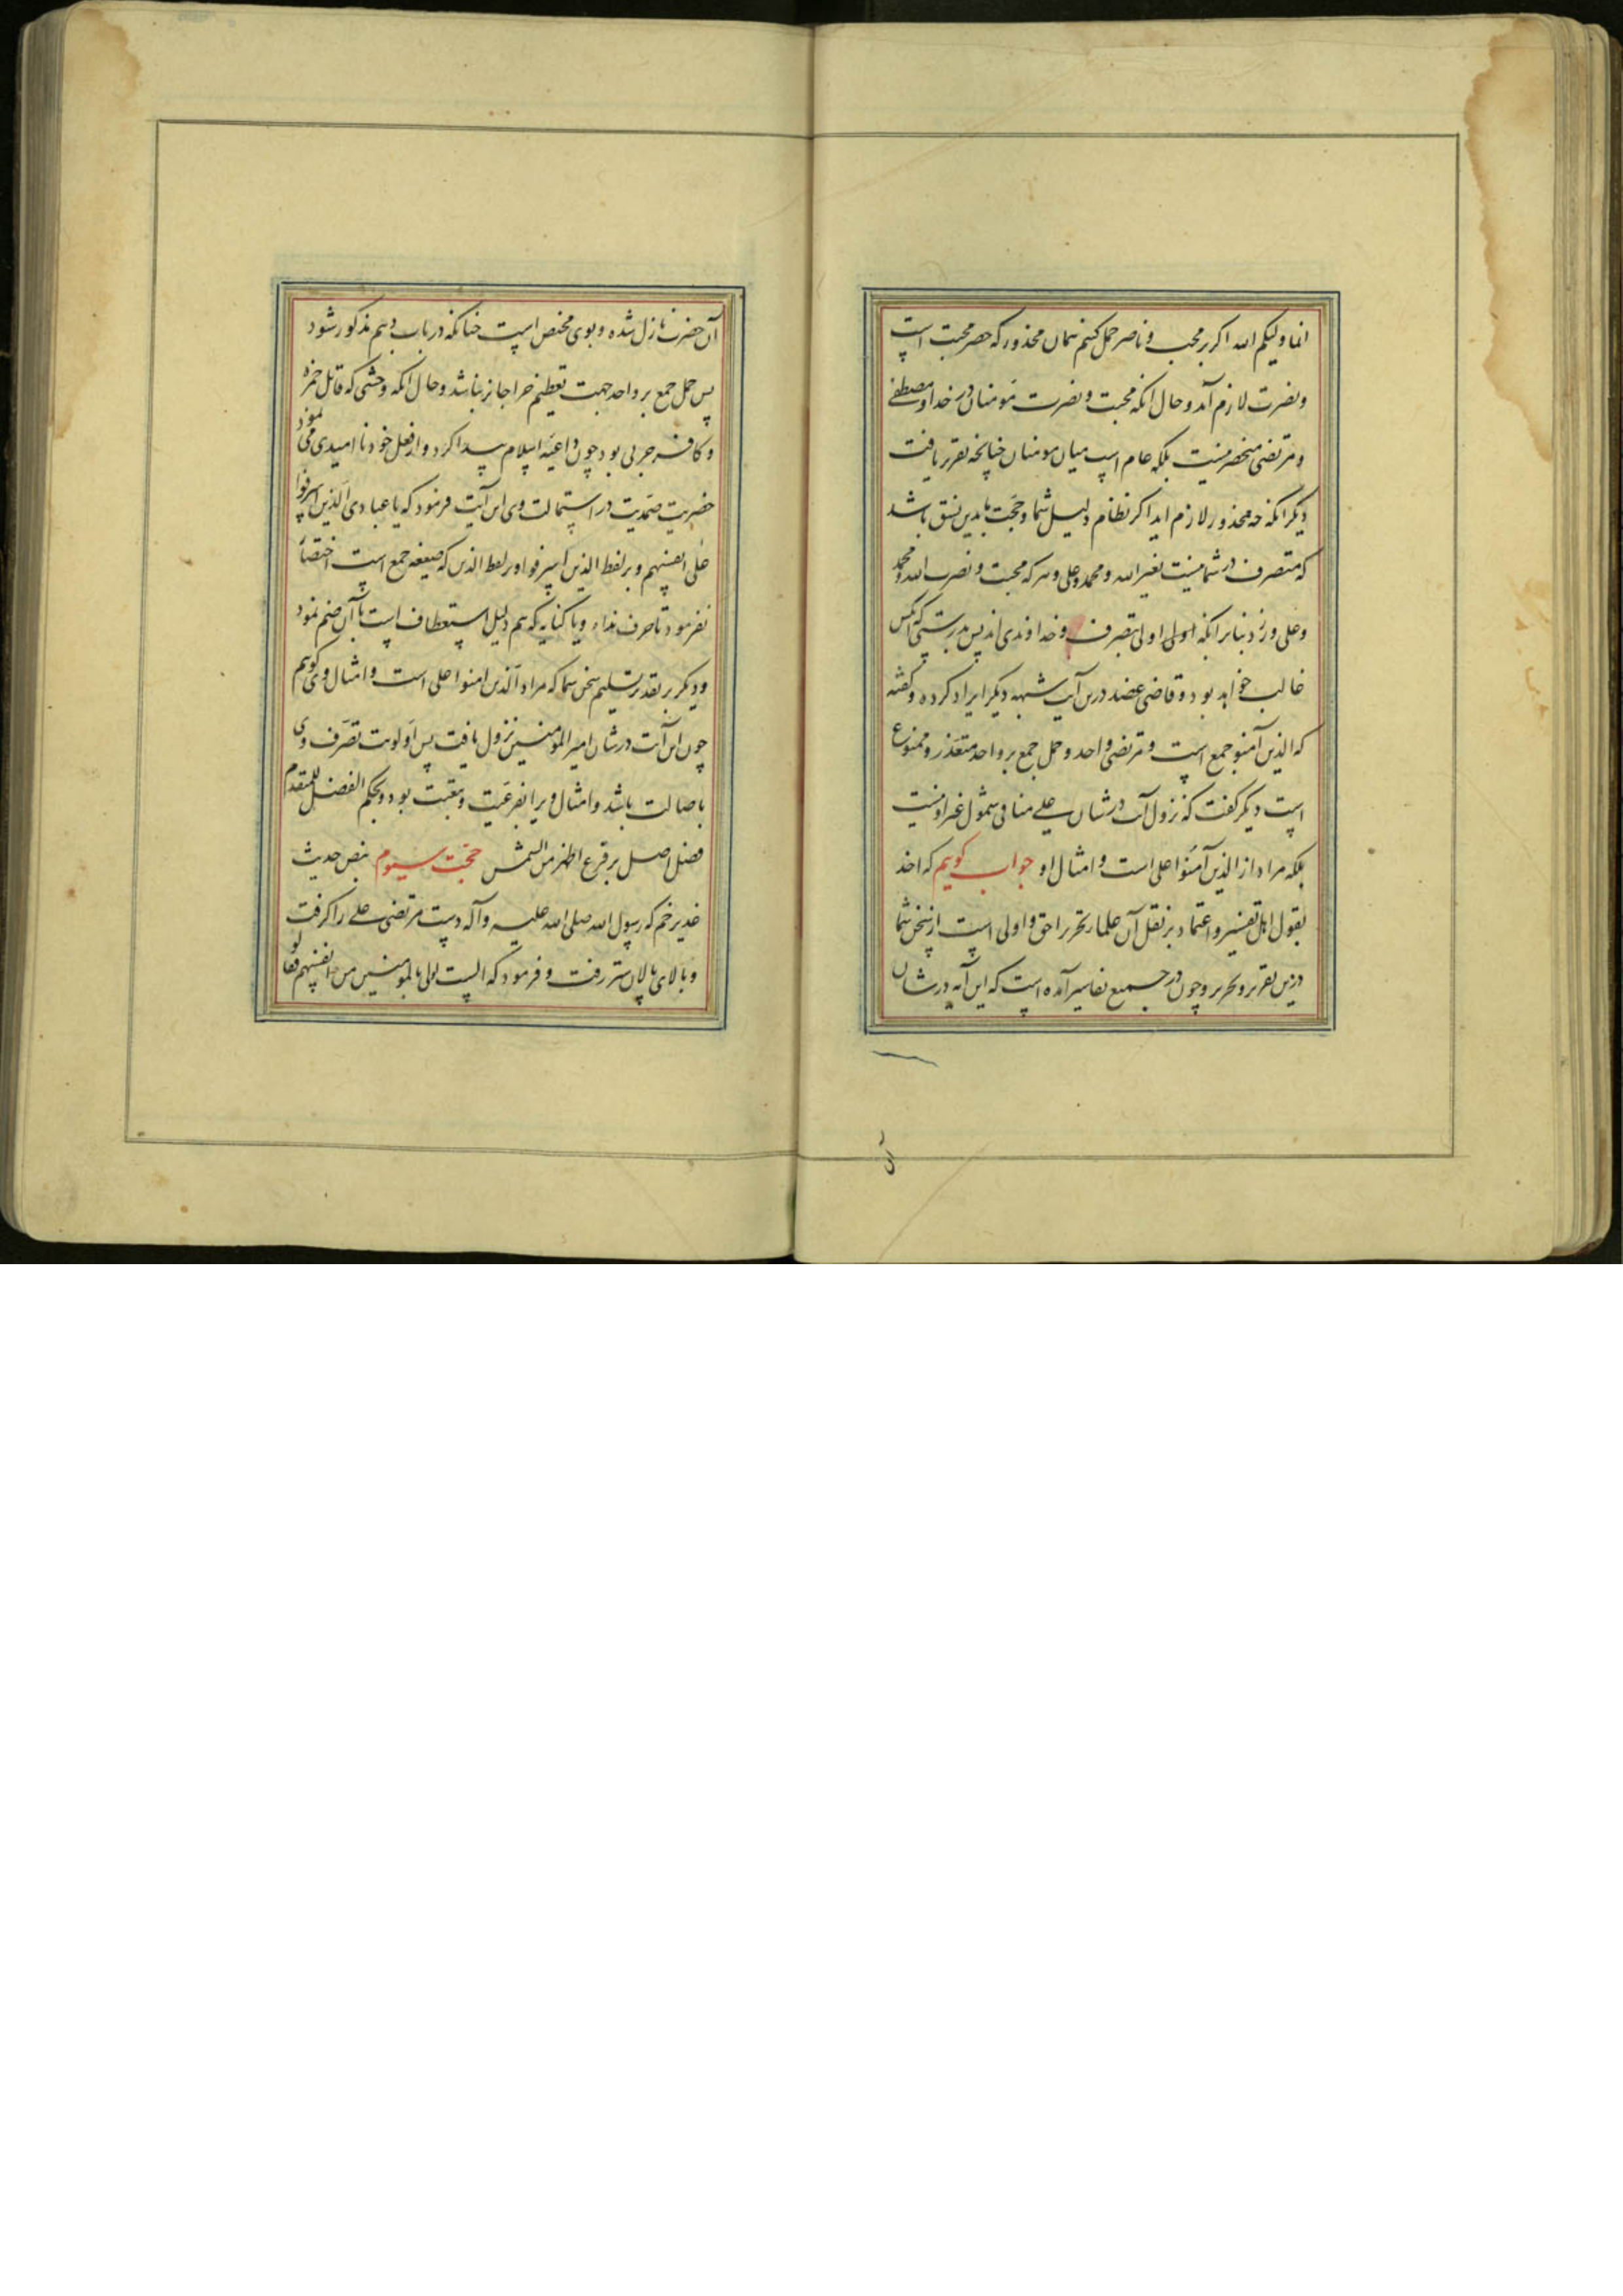 انما ولیکم الله اکر بر محب و ناصر حمل کنیم همان محذور که حصر محبت است
و نصرت لازم آمد و حال انکه محبت و نصرت مومنان در خدا و مصطفی
و مرتضی منحصر نیست بلکه عام است میان مومنان چنانچه تقریر یافت
دیکر انکه چه محذور لازم اید اکر نظام دلیل شما و حجت ما بدین نسق باشد
که متصرف در شما نیست بغیر الله و محمد و علی و هر که محبت و نصرت الله و محمد
و علی ورزد بنابر انکه اولی اولی بتصرف و خداوندی اند پس بدرستی که انکس
غالب خواهد بود و قاضی عضد درین آیت شبهه دیکر ایراد کرده و کفته
که الذین آمنو جمع است و مرتضی واحد و حمل جمع بر واحد متعذر و ممنوع
است دیکر کفت که نزول آیت در شان علی منافی شمول غیر او نیست
بلکه مراد از الذین آمنوا علی است و امثال او جواب کویم که اخذ
بقول اهل تفسیر و اعتماد بر نقل آن علماء نحریر احق و اولی است از سخن شما
درین تقریر و تحریر و چون در جمیع تفاسیر آمده است که این آیه در شان
آن حضرت نازل شده و بوی مختص است چنانکه در باب دهم مذکور شود
پس حمل جمع بر واحد جهت تعظیم چرا جائز نباشد و حال انکه وحشی که قاتل حمزه
و کافر حربی بود چون داعیه اسلام پیدا کرد و از فعل خود نا امیدی می نمود
حضرت صمدیت در استمالت وی این آیت فرمود که یا عبادی الذین اسرفوا
علی انفسهم و بر لفظ الذین اسرفوا و بر لفظ الذین که صیغه جمع است اختصار
نفرمود تا حرف نداء و یا کنایه که هم دلیل استعطاف است با آن ضم نمود
و دیکر بر تقدیر تسلیم سخن شما که مراد الذین امنوا علی است و امثال وی کویم
چون این آیت در شان امیر المومنین نزول یافت پس اولویت تصرف وی
باصالت باشد و امثال ویرا بفرعیت و تبعیت بود و بحکم الفضل للمتقدم
فضل اصل بر فرع اظهر من الشمس حجت سیوم بنص حدیث
غدیر خم که رسول الله صلی الله علیه وآله دست مرتضی علی را کرفت
و بالای پالان شتر رفت و فرمود که الست اولی بالمومنین من انفسهم فقالو